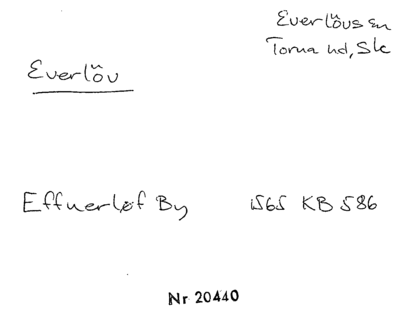 Everlöv
Everlövs sn
Torna hd, Sk
Effuerløf By 1565 KB 586
Nr 20440